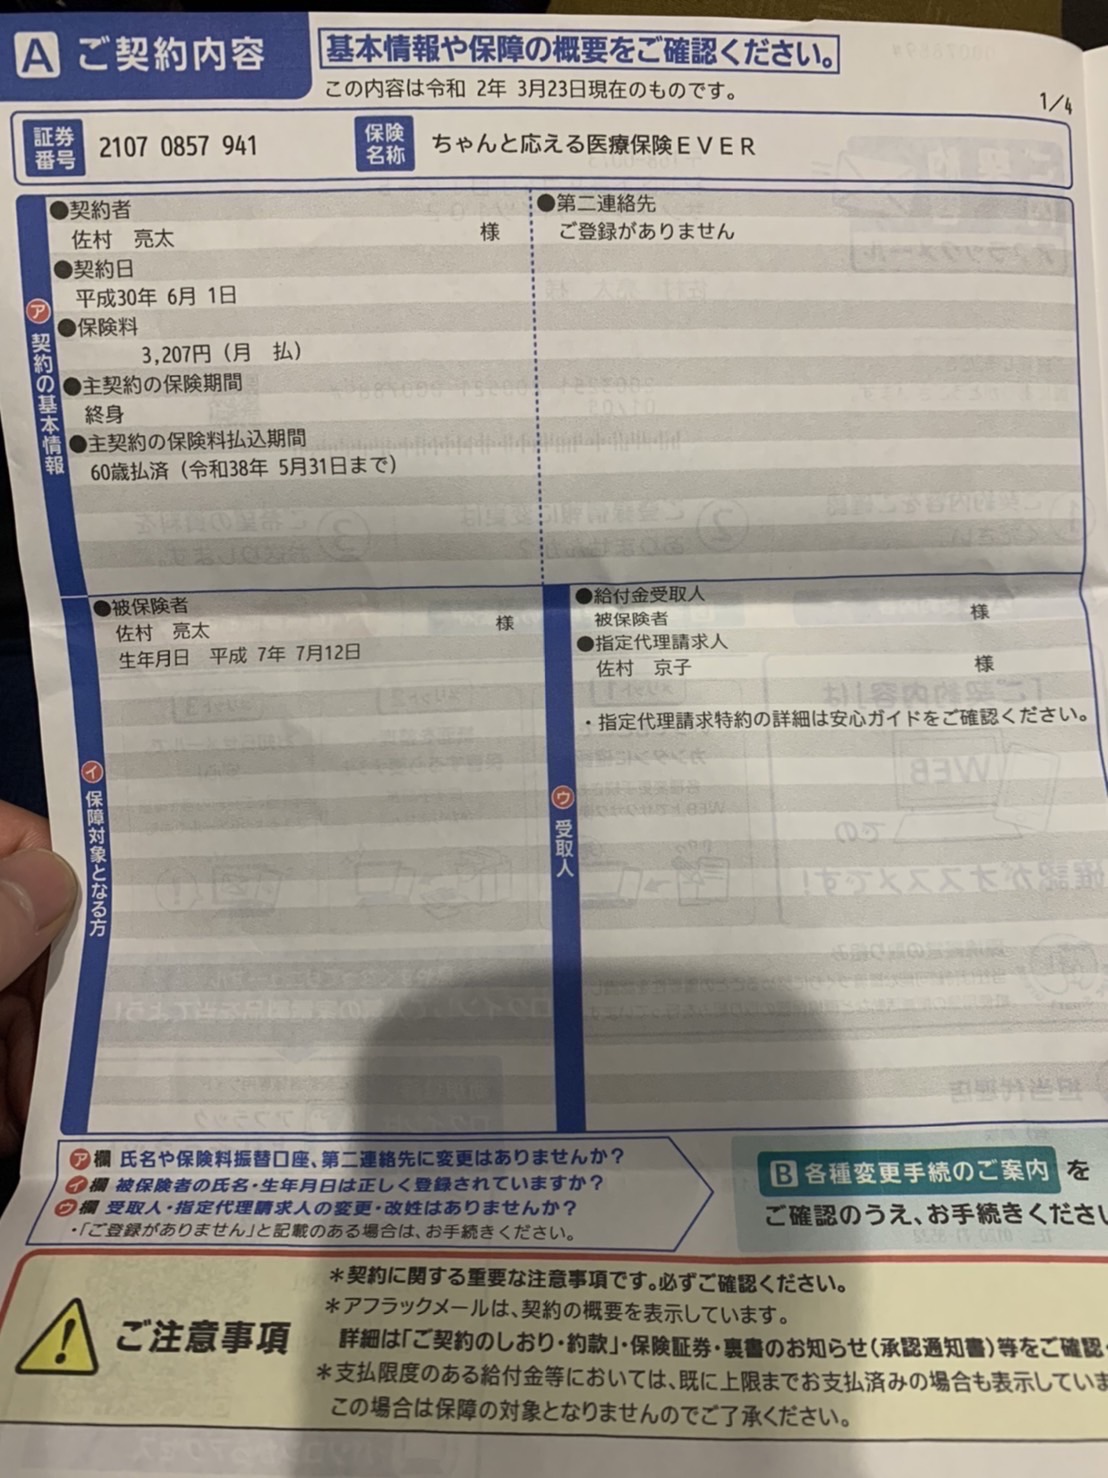 A ご契約内容
基本情報や保障の概要をご確認ください。
この内容は令和 2年 3月23日現在のものです。
1/4
証券番号 2107 0857 941 保険名称 ちゃんと応える医療保険EVER
ア 契約の基本情報
●契約者
佐村 亮太 様
●契約日
平成30年 6月 1日
●保険料
3,207円(月 払)
●主契約の保険期間
終身
●主契約の保険料払込期間
60歳払済(令和38年 5月31日まで)
●第二連絡先
ご登録がありません
イ 保障対象となる方
●被保険者
佐村 亮太 様
生年月日 平成 7年 7月12日
ウ 受取人
●給付金受取人
被保険者 様
●指定代理請求人
佐村 京子 様
・指定代理請求特約の詳細は安心ガイドをご確認ください。
ア欄 氏名や保険料振替口座、第二連絡先に変更はありませんか?
イ欄 被保険者の氏名・生年月日は正しく登録されていますか?
ウ欄 受取人・指定代理請求人の変更・改姓はありませんか?
・「ご登録がありません」と記載のある場合は、お手続きください。
B 各種変更手続のご案内 を
ご確認のうえ、お手続きくださ
ご注意事項
*契約に関する重要な注意事項です。必ずご確認ください。
*アフラックメールは、契約の概要を表示しています。
詳細は「ご契約のしおり・約款」・保険証券・裏書のお知らせ(承認通知書)等をご確認
*支払限度のある給付金等においては、既に上限までお支払済みの場合も表示していま
この場合は保障の対象となりませんのでご了承ください。